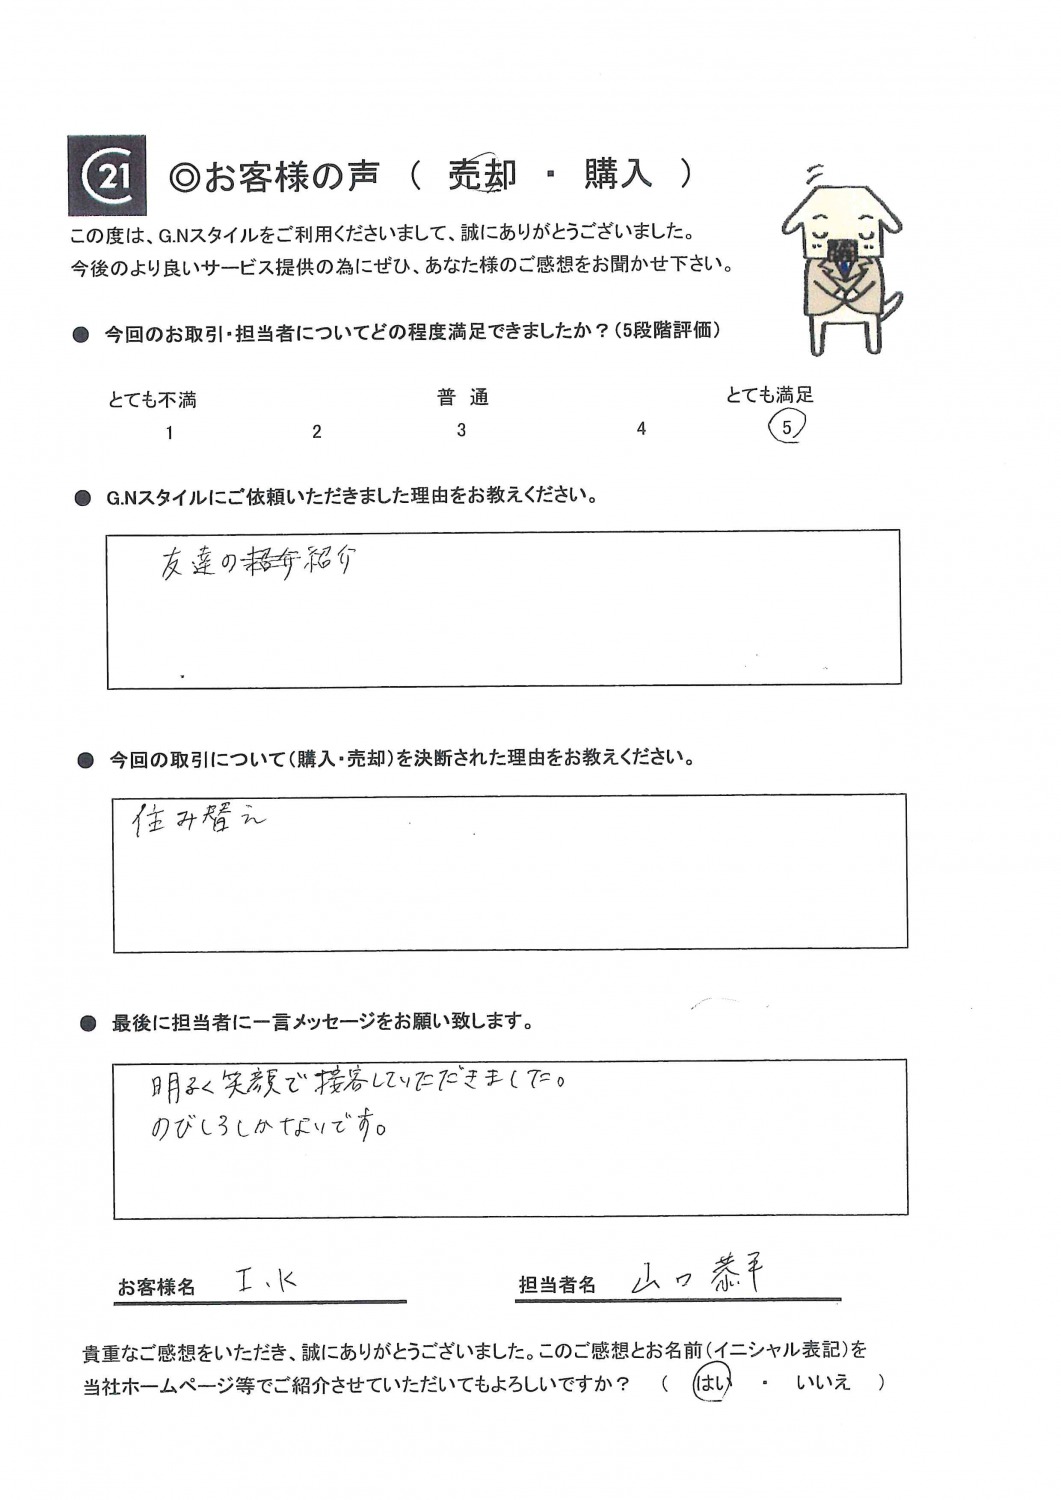 C21
◎お客様の声 ( 売却 ・ 購入 )
この度は、G.Nスタイルをご利用くださいまして、誠にありがとうございました。
今後のより良いサービス提供の為にぜひ、あなた様のご感想をお聞かせ下さい。
● 今回のお取引・担当者についてどの程度満足できましたか？(5段階評価)
とても不満 普 通 とても満足
1 2 3 4 5
● G.Nスタイルにご依頼いただきました理由をお教えください。
友達の紹介
● 今回の取引について(購入・売却)を決断された理由をお教えください。
住み替え
● 最後に担当者に一言メッセージをお願い致します。
明るく笑顔で接客していただきました。
のびしろしかないです。
お客様名 I.K 担当者名 山口 恭平
貴重なご感想をいただき、誠にありがとうございました。このご感想とお名前(イニシャル表記)を
当社ホームページ等でご紹介させていただいてもよろしいですか？ ( はい ・ いいえ )